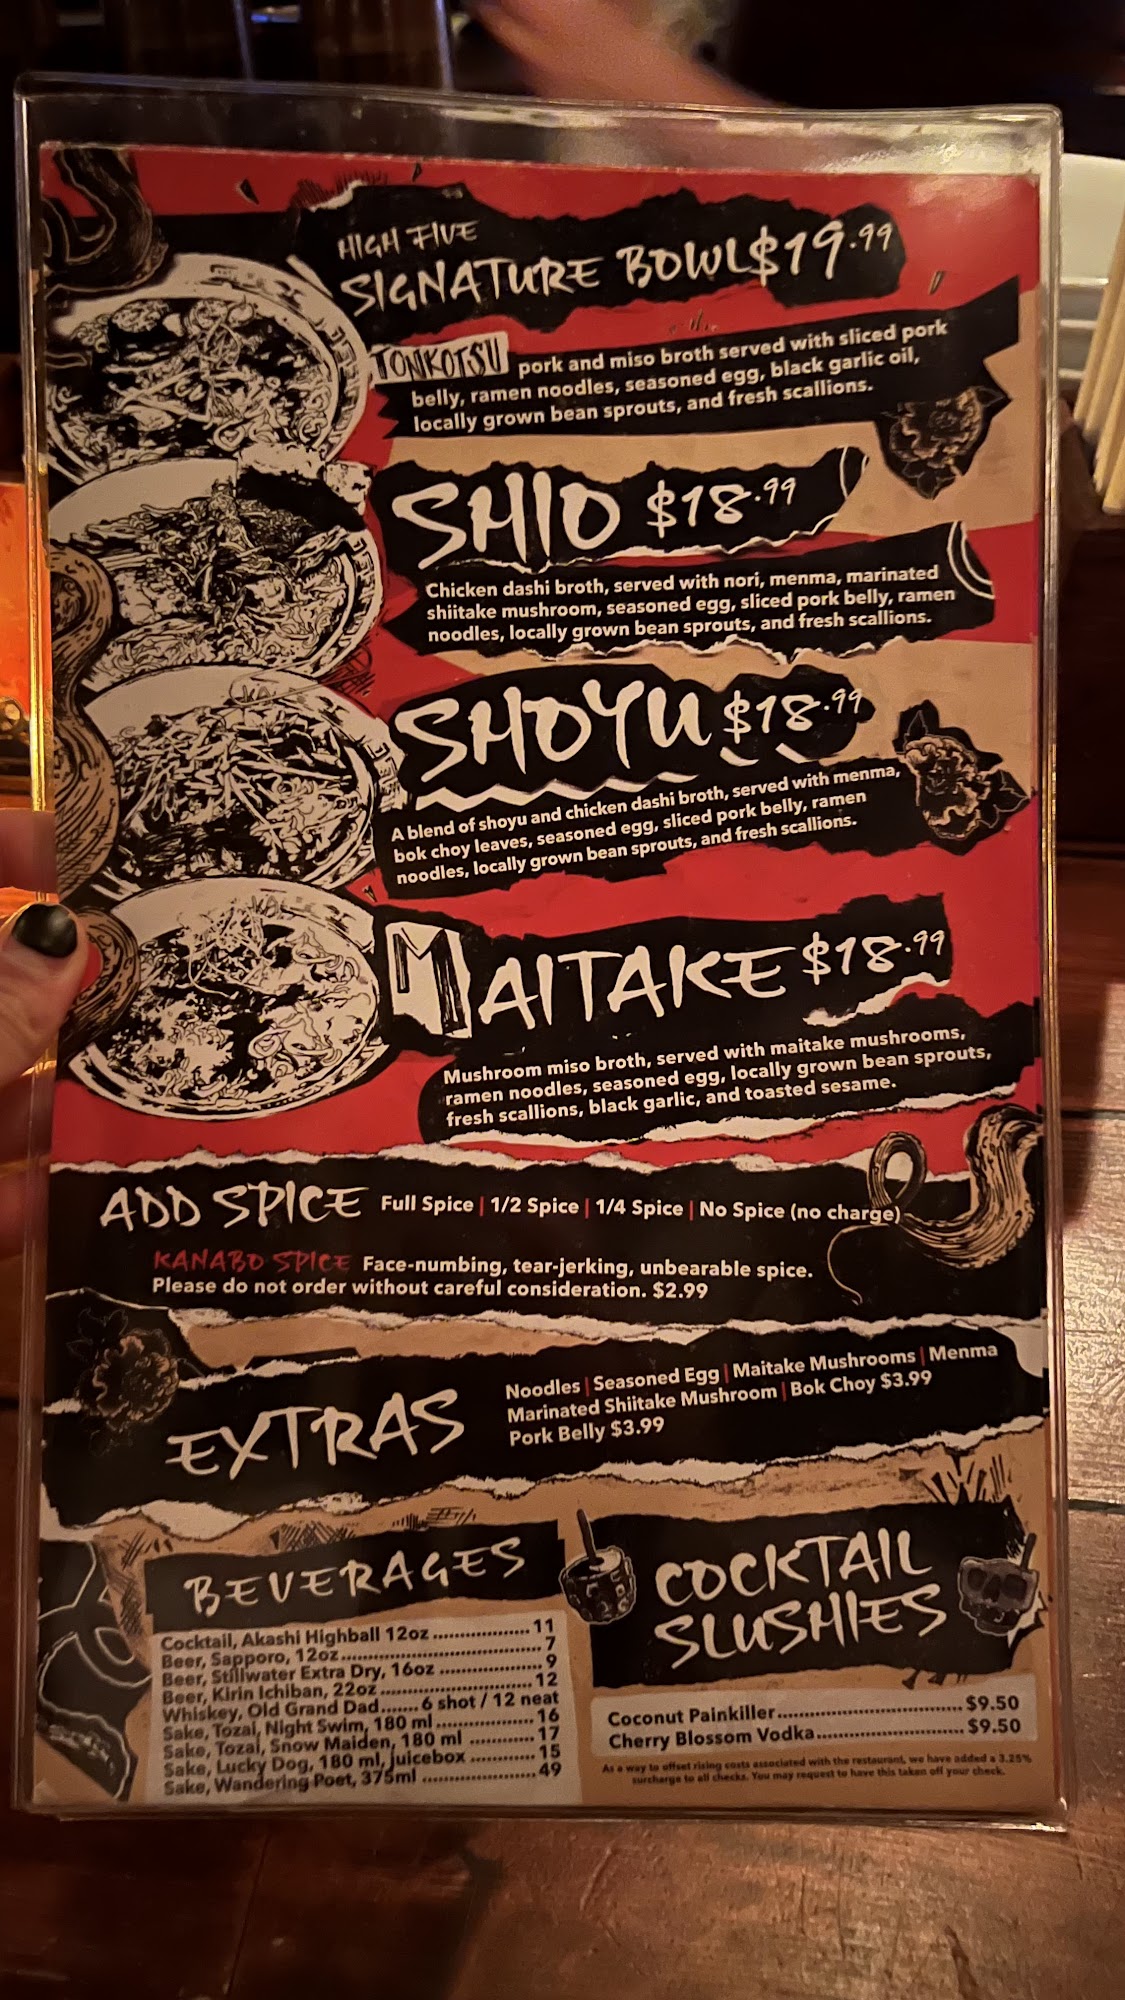 HIGH FIVE
SIGNATURE BOWL $19.99
TONKOTSU pork and miso broth served with sliced pork
belly, ramen noodles, seasoned egg, black garlic oil,
locally grown bean sprouts, and fresh scallions.
SHIO $18.99
Chicken dashi broth, served with nori, menma, marinated
shiitake mushroom, seasoned egg, sliced pork belly, ramen
noodles, locally grown bean sprouts, and fresh scallions.
SHOYU $18.99
A blend of shoyu and chicken dashi broth, served with menma,
bok choy leaves, seasoned egg, sliced pork belly, ramen
noodles, locally grown bean sprouts, and fresh scallions.
MAITAKE $18.99
Mushroom miso broth, served with maitake mushrooms,
ramen noodles, seasoned egg, locally grown bean sprouts,
fresh scallions, black garlic, and toasted sesame.
ADD SPICE Full Spice | 1/2 Spice | 1/4 Spice | No Spice (no charge)
KANABO SPICE Face-numbing, tear-jerking, unbearable spice.
Please do not order without careful consideration. $2.99
EXTRAS
Noodles | Seasoned Egg | Maitake Mushrooms | Menma
Marinated Shiitake Mushroom | Bok Choy $3.99
Pork Belly $3.99
BEVERAGES
Cocktail, Akashi Highball 12oz .................. 11
Beer, Sapporo, 12oz.................................. 7
Beer, Stillwater Extra Dry, 16oz .................. 9
Beer, Kirin Ichiban, 22oz........................... 12
Whiskey, Old Grand Dad....... 6 shot / 12 neat
Sake, Tozai, Night Swim, 180 ml ................. 16
Sake, Tozai, Snow Maiden, 180 ml .............. 17
Sake, Lucky Dog, 180 ml, juicebox ............ 15
Sake, Wandering Poet, 375ml .................... 49
COCKTAIL
SLUSHIES
Coconut Painkiller................................. $9.50
Cherry Blossom Vodka.......................... $9.50
As a way to offset rising costs associated with the restaurant, we have added a 3.25%
surcharge to all checks. You may request to have this taken off your check.